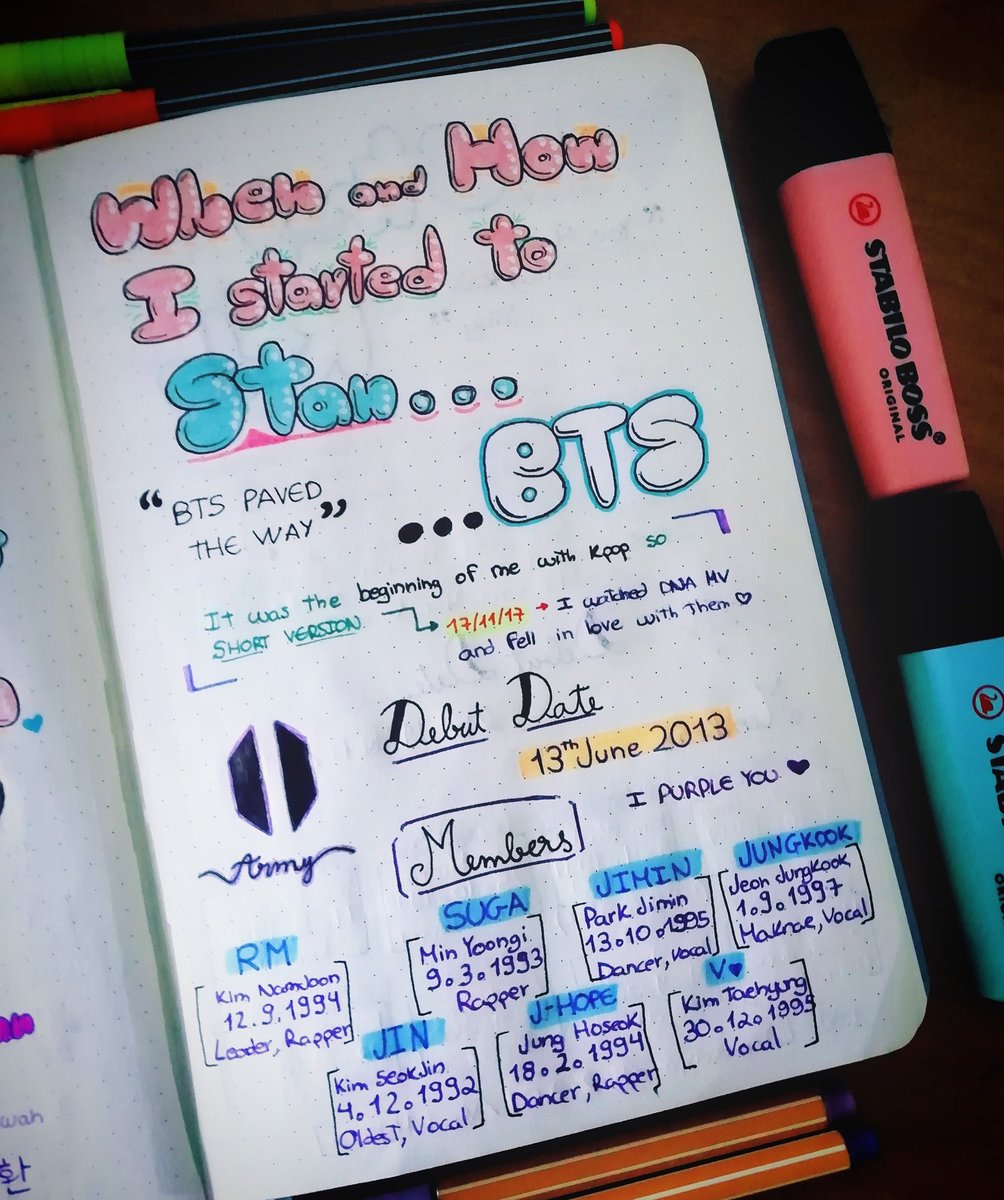 When and How
I started to
Stan...
...BTS
“BTS PAVED
THE WAY”
It was the beginning of me with Kpop so
SHORT VERSION
17/11/17 → I watched DNA MV
and fell in love with Them ♡
Debut Date
13th June 2013
I PURPLE YOU ♥
Army
Members
RM
Kim Namjoon
12.9.1994
Leader, Rapper
JIN
Kim SeokJin
4.12.1992
OldesT, Vocal
SUGA
Min Yoongi
9.3.1993
Rapper
J-HOPE
Jung Hoseok
18.2.1994
Dancer, Rapper
JIMIN
Park Jimin
13.10.1995
Dancer, Vocal
V♥
Kim Taehyung
30.12.1995
Vocal
JUNGKOOK
Jeon Jungkook
1.9.1997
Maknae, Vocal
STABILO BOSS®
ORIGINAL
환